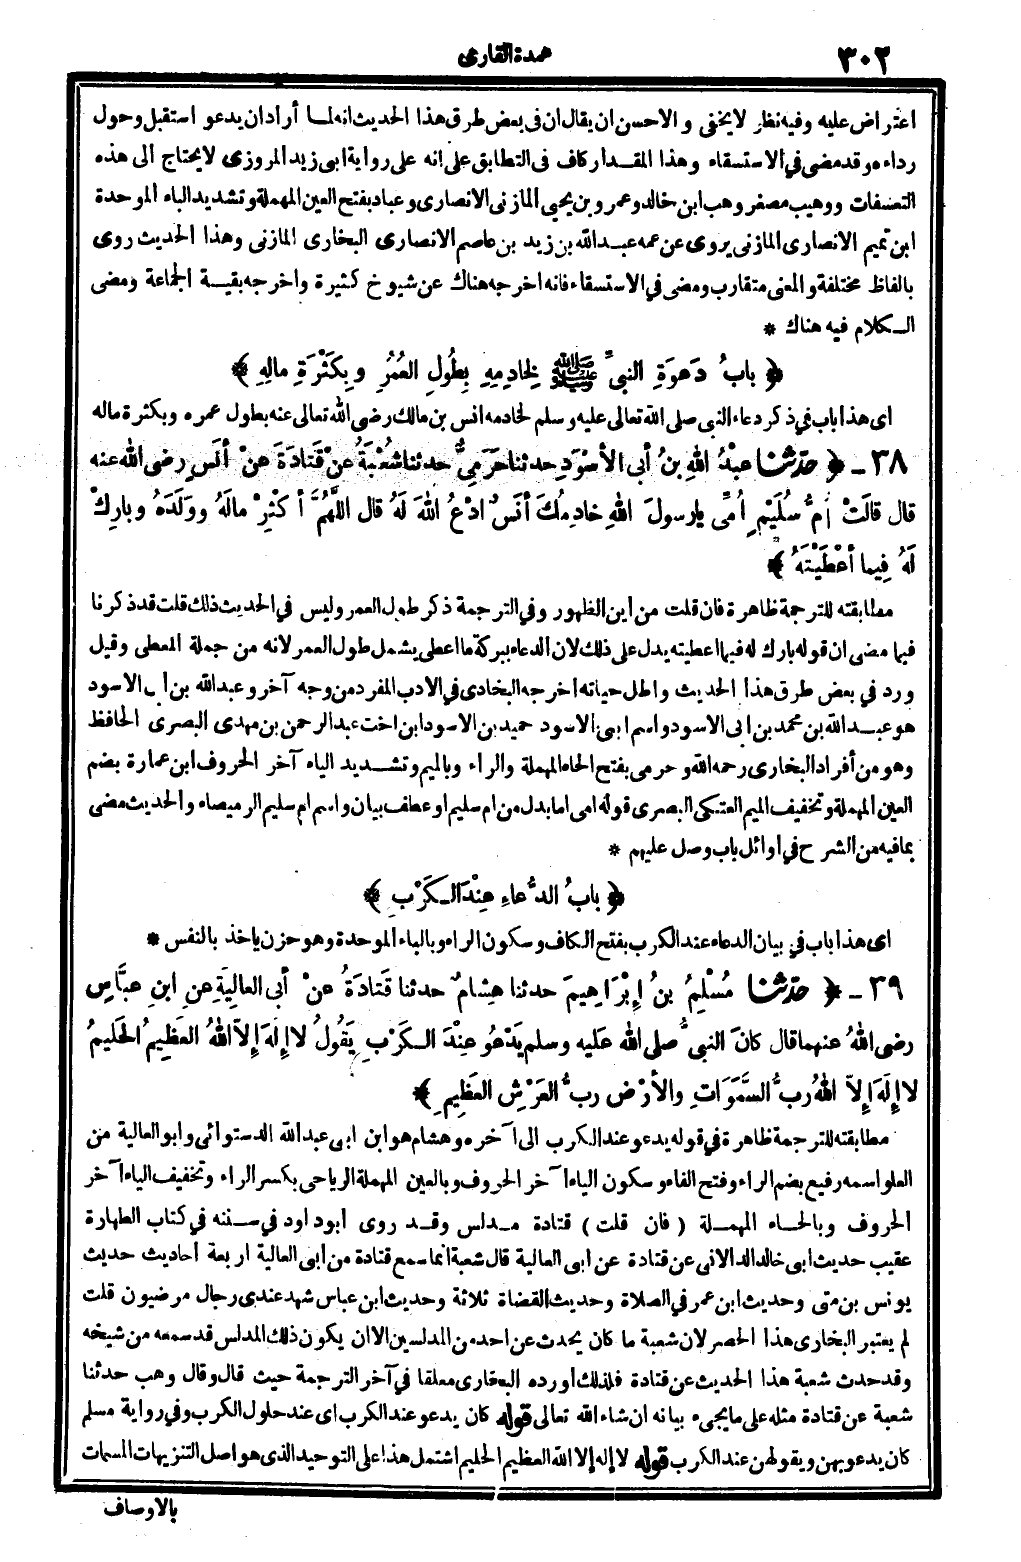 ٣٠٢
عمدة القارى
اعتراض عليه وفيه نظر لا يخفى والاحسن ان يقال ان فى بعض طرق هذا الحديث انه لما أراد ان يدعو استقبل وحول
رداءه وقد مضى في الاستسقاء وهذا المقدار كاف فى التطابق على انه على رواية ابى زيد المروزى لا يحتاج الى هذه
التعسفات ووهيب مصغر وهب ابن خالد وعمرو بن يحيى المازنى الانصارى وعباد بفتح العين المهملة وتشديد الباء الموحدة
ابن تميم الانصارى المازنى يروى عن عمه عبد الله بن زيد بن عاصم الانصارى البخارى المازنى وهذا الحديث روى
بالفاظ مختلفة والمعنى متقارب ومضى في الاستسقاء فانه اخرجه هناك عن شيوخ كثيرة واخرجه بقية الجماعة ومضى
الكلام فيه هناك *
﴿ بابُ دَعْوَةِ النبىِّ ﷺ لِخادِمِهِ بِطُولِ العُمُرِ وبِكَثْرَةِ مالِهِ ﴾
اى هذا باب في ذكر دعاء النبى صلى الله تعالى عليه وسلم لخادمه انس بن مالك رضى الله تعالى عنه بطول عمره وبكثرة ماله
٣٨ ـ ﴿ حدّثنا عبْدُ اللهِ بنُ أبى الأسْوَدِ حدثنا حَرَمِىٌّ حدثنا شُعْبَةُ عنْ قَتَادَةَ عنْ أنَسٍ رضى الله عنه
قال قالَتْ أُمُّ سُلَيْمٍ أُمِّى يا رسولَ اللهِ خادِمُكَ أنَسٌ ادْعُ اللهَ لَهُ قال اللَّهُمَّ أكْثِرْ مالَهُ ووَلَدَهُ وبارِكْ
لَهُ فِيما أعْطَيْتَهُ ﴾
مطابقته للترجمة ظاهرة فان قلت من أين الظهور وفي الترجمة ذكر طول العمر وليس في الحديث ذلك قلت قد ذكرنا
فيما مضى ان قوله بارك له فيما اعطيته يدل على ذلك لان الدعاء ببركة ما اعطى يشمل طول العمر لانه من جملة المعطى وقيل
ورد في بعض طرق هذا الحديث واطل حياته اخرجه البخارى في الادب المفرد من وجه آخر وعبد الله بن أبى الاسود
هو عبد الله بن محمد بن ابى الاسود واسم ابى الاسود حميد بن الاسود ابن اخت عبد الرحمن بن مهدى البصرى الحافظ
وهو من أفراد البخارى رحمه الله وحرمى بفتح الحاء المهملة والراء وبالميم وتشديد الياء آخر الحروف ابن عمارة بضم
العين المهملة وتخفيف الميم العتكى البصرى قوله امى اما بدل من ام سليم او عطف بيان واسم ام سليم الرميصاء والحديث مضى
بما فيه من الشرح في أوائل باب وصل عليهم *
﴿ بابُ الدُّعاءِ عِنْدَ الكَرْبِ ﴾
اى هذا باب في بيان الدعاء عند الكرب بفتح الكاف وسكون الراء وبالباء الموحدة وهو حزن ياخذ بالنفس *
٣٩ ـ ﴿ حدّثنا مُسْلِمُ بنُ إبْرَاهِيمَ حدثنا هِشامٌ حدثنا قَتَادَةُ عنْ أبى العالِيَةِ عنِ ابنِ عبَّاسٍ
رضى اللهُ عنهما قال كانَ النبىُّ صلى الله عليه وسلم يَدْعُو عِنْدَ الكَرْبِ يَقُولُ لا إلَهَ إلاّ اللهُ العَظِيمُ الحَلِيمُ
لا إلَهَ إلاّ اللهُ رَبُّ السَّمَوَاتِ والأرْضِ ربُّ العَرْشِ العَظِيمِ ﴾
مطابقته للترجمة ظاهرة في قوله يدعو عند الكرب الى آخره وهشام هو ابن ابى عبد الله الدستوائى وابو العالية من
العلو اسمه رفيع بضم الراء وفتح الفاء وسكون الياء آخر الحروف وبالعين المهملة الرياحى بكسر الراء وتخفيف الياء آخر
الحروف وبالحاء المهملة ( فان قلت ) قتادة مدلس وقد روى أبو داود في سننه في كتاب الطهارة
عقيب حديث ابى خالد الدالانى عن قتادة عن ابى العالية قال شعبة انما سمع قتادة من أبى العالية اربعة أحاديث حديث
يونس بن متى وحديث ابن عمر في الصلاة وحديث القضاة ثلاثة وحديث ابن عباس شهد عندى رجال مرضيون قلت
لم يعتبر البخارى هذا الحصر لان شعبة ما كان يحدث عن احد من المدلسين الا ان يكون ذلك المدلس قد سمعه من شيخه
وقد حدث شعبة هذا الحديث عن قتادة فلذلك أورده البخارى معلقا في آخر الترجمة حيث قال وقال وهب حدثنا
شعبة عن قتادة مثله على ما يجىء بيانه ان شاء الله تعالى قوله كان يدعو عند الكرب اى عند حلول الكرب وفي رواية مسلم
كان يدعو بهن ويقولهن عند الكرب قوله لا إله إلا الله العظيم الحليم اشتمل هذا على التوحيد الذى هو اصل التنزيهات المسمات
بالاوصاف